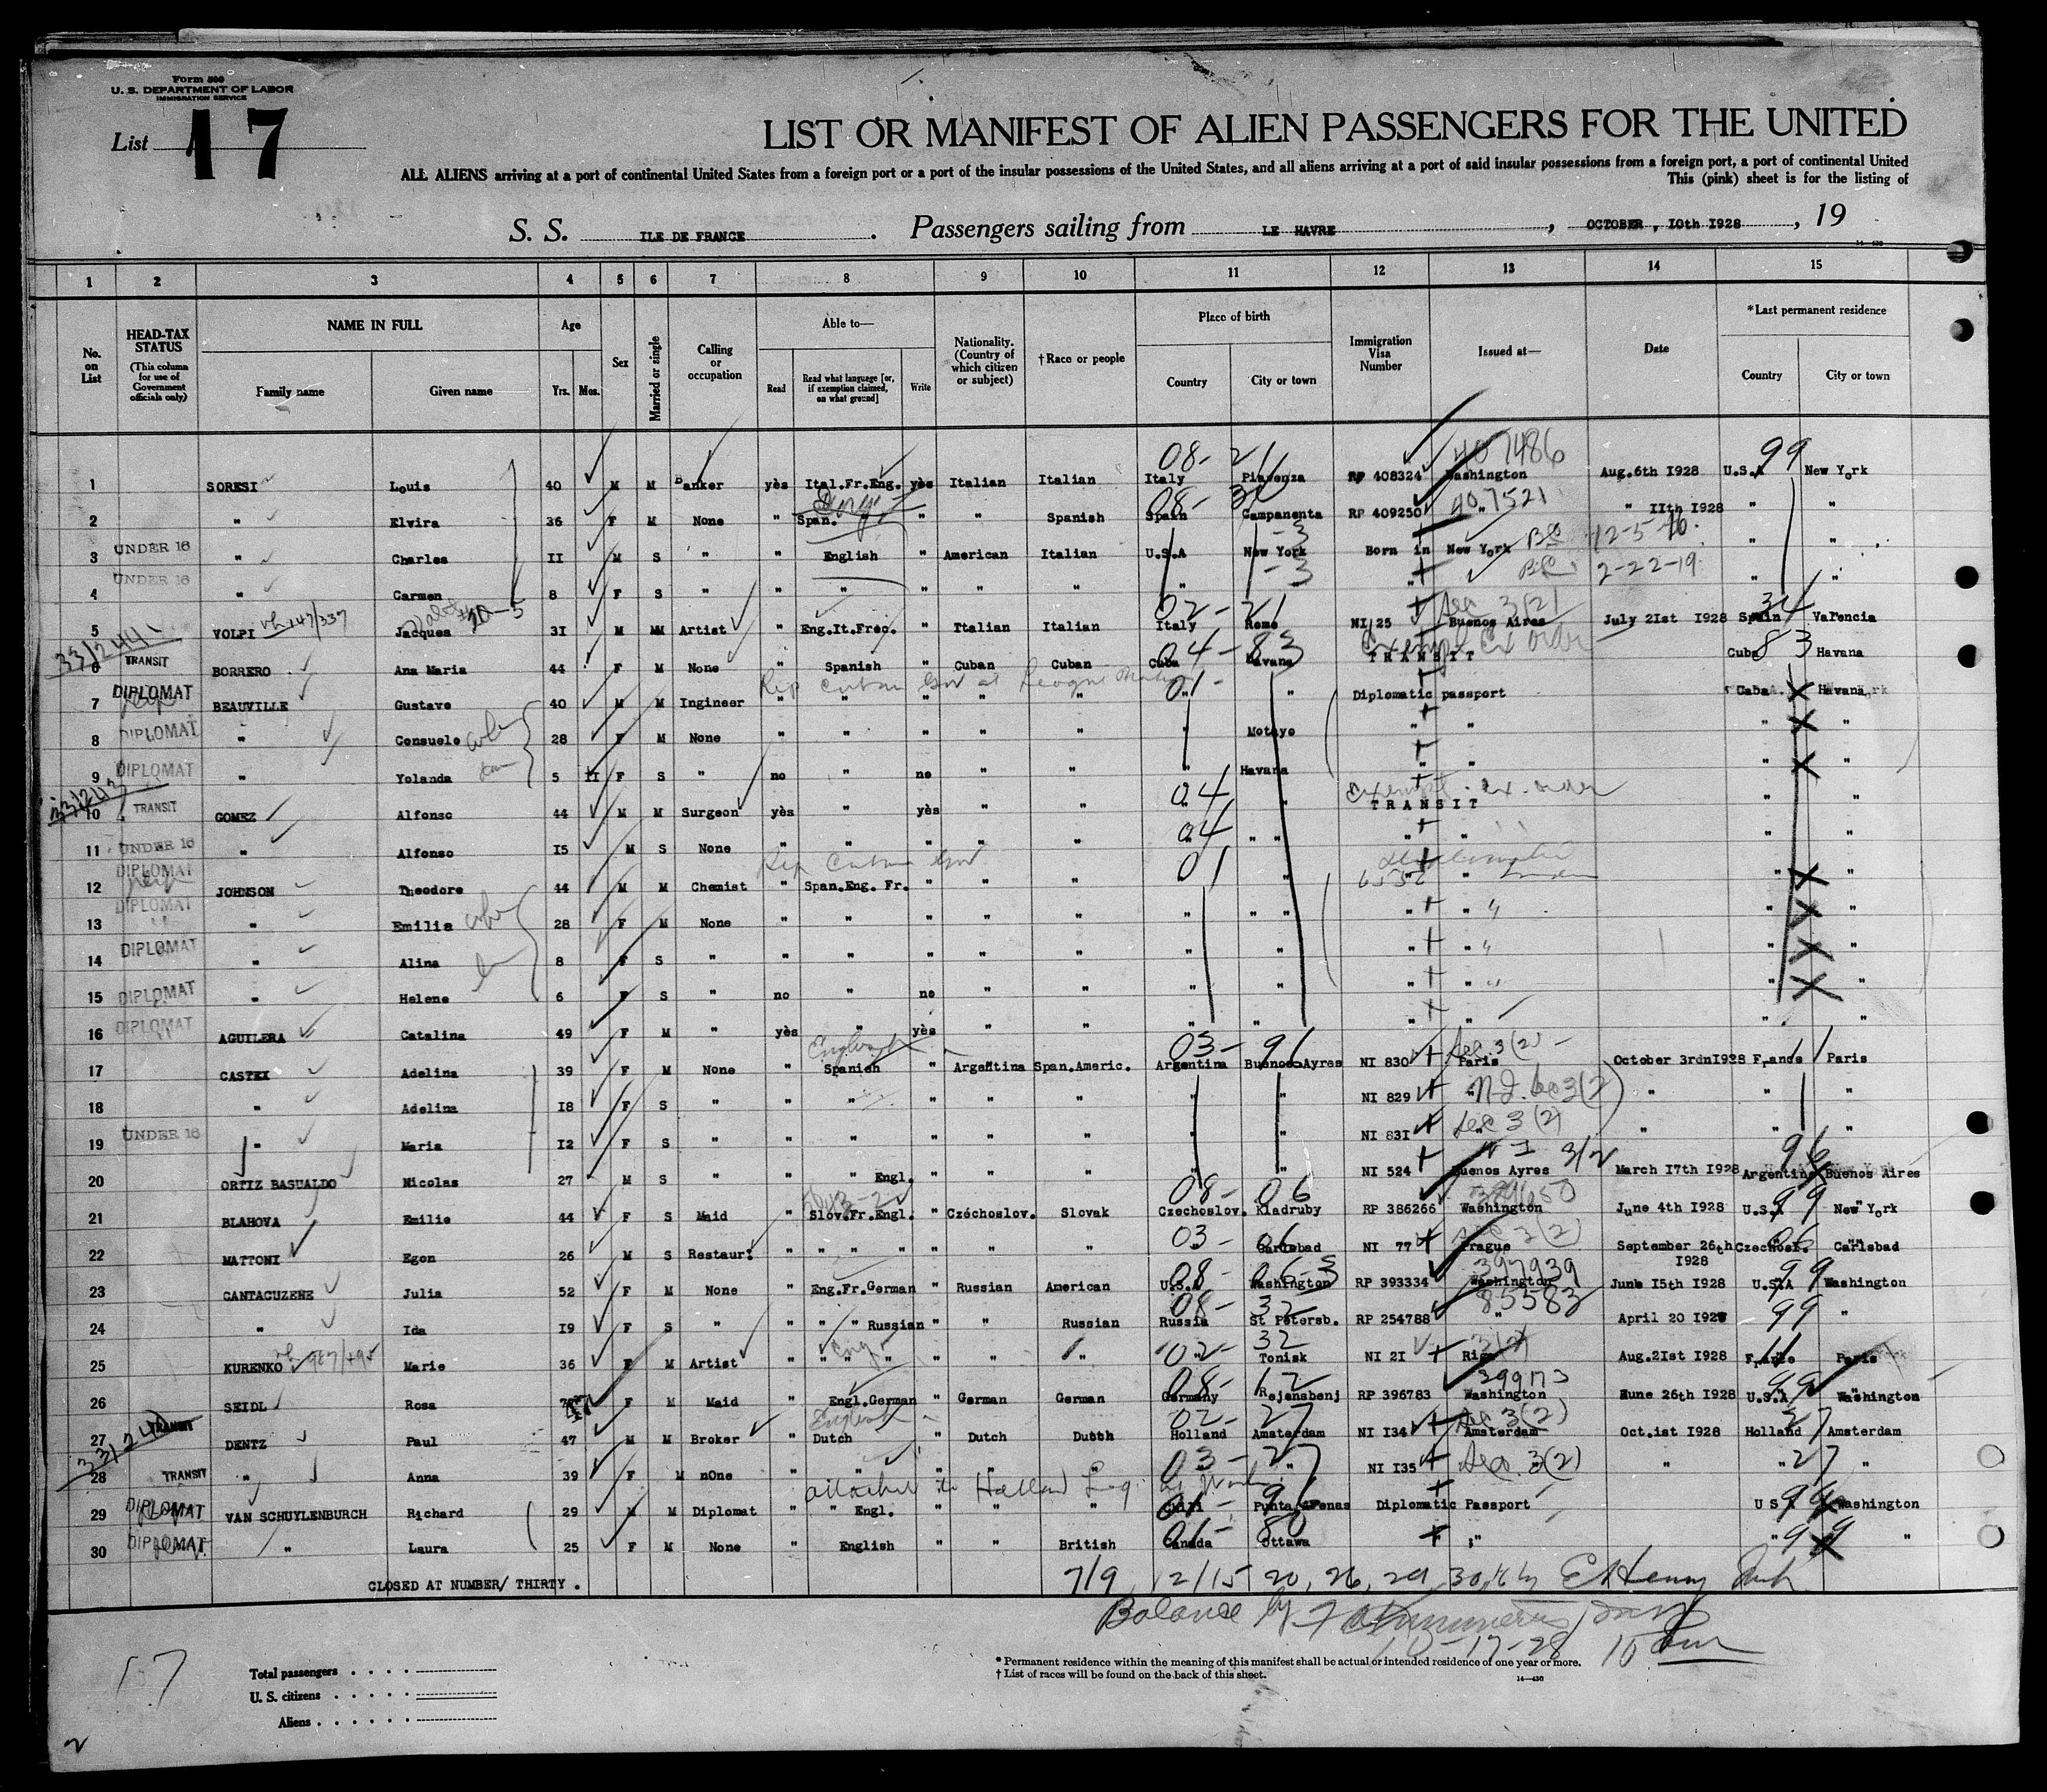 Form 500
U. S. DEPARTMENT OF LABOR
IMMIGRATION SERVICE
List 17
LIST OR MANIFEST OF ALIEN PASSENGERS FOR THE UNITED
ALL ALIENS arriving at a port of continental United States from a foreign port or a port of the insular possessions of the United States, and all aliens arriving at a port of said insular possessions from a foreign port, a port of continental United
This (pink) sheet is for the listing of
S. S. ILE DE FRANCE . Passengers sailing from LE HAVRE , OCTOBER , IOth I928 , 19
14-430
1 2 3 4 5 6 7 8 9 10 11 12 13 14 15
No. on List HEAD-TAX STATUS (This column for use of Government officials only) NAME IN FULL Family name Given name Age Yrs. Mos. Sex Married or single Calling or occupation Able to— Read Read what language [or, if exemption claimed, on what ground] Write Nationality. (Country of which citizen or subject) †Race or people Place of birth Country City or town Immigration Visa Number Issued at— Date *Last permanent residence Country City or town
407486
08- 21 99
1 SORESI Louis 40 M M Banker yès Ital.Fr.Eng. yès Italian Italian Italy Piavenza RP 408324 Washington Aug.6th I928 U.S.A New York
08- 407521
2 " Elvira 36 F M None " Span. " " " Spanish Spain Campanenta RP 409250 " " IIth I928 " "
3 UNDER 16 " Charles II M S " " English " American Italian U.S.A New York Born in New York 12-5-16. " "
4 UNDER 16 " Carmen 8 F S " " " " " " " " " 2-22-19. " "
02- 21 Sec 3(2) 34
5 VOLPI 147/337 Jacques 3I M MM Artist " Eng.It.Frec. " Ttalian Italian Italy Rome NI 25 Buenos Aires July 2Ist I928 Spain Valencia
33/2441 04- 83 Exempt Ex order 83
6 TRANSIT BORRERO Ana Maria 44 F M None " Spanish " Cuban Cuban Cuba Havana TRANSIT Cuba Havana
Rep Cuban Gov at League 01-
7 DIPLOMAT BEAUVILLE Gustave 40 M M Ingineer " " " " " " " Diplomatic passport Cuba Havana
8 DIPLOMAT " Consuelo wife 28 F M None " " " " " " Motayo " " " "
9 DIPLOMAT " Yolanda 5 II F S " no " no " " " Havana " " " "
04 Exempt ex. order
10 TRANSIT GOMEZ Alfonso 44 M M Surgeon yès " yès " " " " TRANSIT " "
04
11 UNDER 16 " Alfonso I5 M S None " " " " " " " " " " " "
Rep Cuban Gov 01
12 DIPLOMAT JOHNSON Theodore 44 M M Chemist " Span.Eng. Fr. " " " " " " " "
13 DIPLOMAT " Emilia wife 28 F M None " " " " " " " " " " " "
14 DIPLOMAT " Alina 8 F S " " " " " " " " " " " "
15 DIPLOMAT " Helene 6 F S " no " no " " " " " " " "
16 DIPLOMAT AGUILERA Catalina 49 F M " yès " yès " " " " " " " "
English 03- 91 Sec. 3(2) 11
17 CASTEX Adelina 39 F M None " Spanish " Argentina Span.Americ. Argentina Buenos Ayres NI 830 Paris October 3rdnI928 France Paris
18 " Adelina I8 F S " " " " " " " " NI 829 " " " "
19 UNDER 16 " Maria I2 F S " " " " " " " " NI 83I Sec 3(2) " " "
3/2 96
20 ORTIZ BASUALDO Nicolas 27 M S " " " Engl. " " " " " NI 524 Buenos Ayres March I7th I928 Argentina Buenos Aires
08- 06 99
21 BLAHOVA Emilie 44 F S Maid " Slov.Fr.Engl. " Czéchoslov. Slovak Czechoslov. Kladruby RP 386266 Washington June 4th I928 U.S.A New York
03- 06 Sec 3(2) 06
22 MATTONI Egon 26 M S Restaur: " " " " " " " " Carlsbad NI 77 Prague September 26th I928 Czechosl. Carlsbad
08- 397939 99
23 CANTACUZENE Julia 52 F M None " Eng.Fr.German " Russian American U.S.A Washington RP 393334 Washington June I5th I928 U.S.A Washington
08- 32 85583 99
24 " Ida I9 F S " " " " Russian " " Russian Russia St Petersb. RP 254788 " April 20 I928 "
02- 32 3(2) 11
25 KURENKO Marie 36 F M Artist " " " " " " " " Tonisk NI 2I Riga Aug.2Ist I928 France Paris
08- 12 299173 99
26 SEIDL Rosa F M Maid " Engl.German " German German Germany Rejensbenj RP 396783 Washington Eune 26th I928 U.S.A Washington
English 02- 27 Sec 3(2) 27
27 TRANSIT DENTZ Paul 47 M M Broker " Dutch " Dutch Dutch Holland Amsterdam NI I34 Amsterdam Oct.ist I928 Holland Amsterdam
03- 27 27
28 TRANSIT " Anna 39 F M nOne " " " " " " " NI I35 Sec. 3(2) " " "
attached to Holland Leg. 01- 91 99
29 DIPLOMAT VAN SCHUYLENBURCH Richard 29 M M Diplomat " " Engl. " " " Chili Punta Arenas Diplomatic Passport U S A Washington
01- 80 99
30 DIPLOMAT " Laura 25 F M None " English " " British Canada Ottawa " " " "
CLOSED AT NUMBER/ THIRTY .
7/9 12/15 20, 26, 29, 30, by E Henry
Balance by
10-17-28 10
17
Total passengers
U. S. citizens
Aliens
* Permanent residence within the meaning of this manifest shall be actual or intended residence of one year or more.
† List of races will be found on the back of this sheet.
14—430